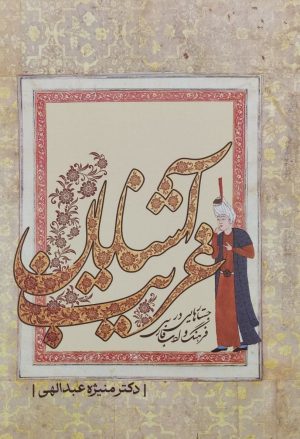 آشنایان
غریب
جستارهایی در
فرهنگ و ادب فارسی
دکتر منیژه عبدالهی